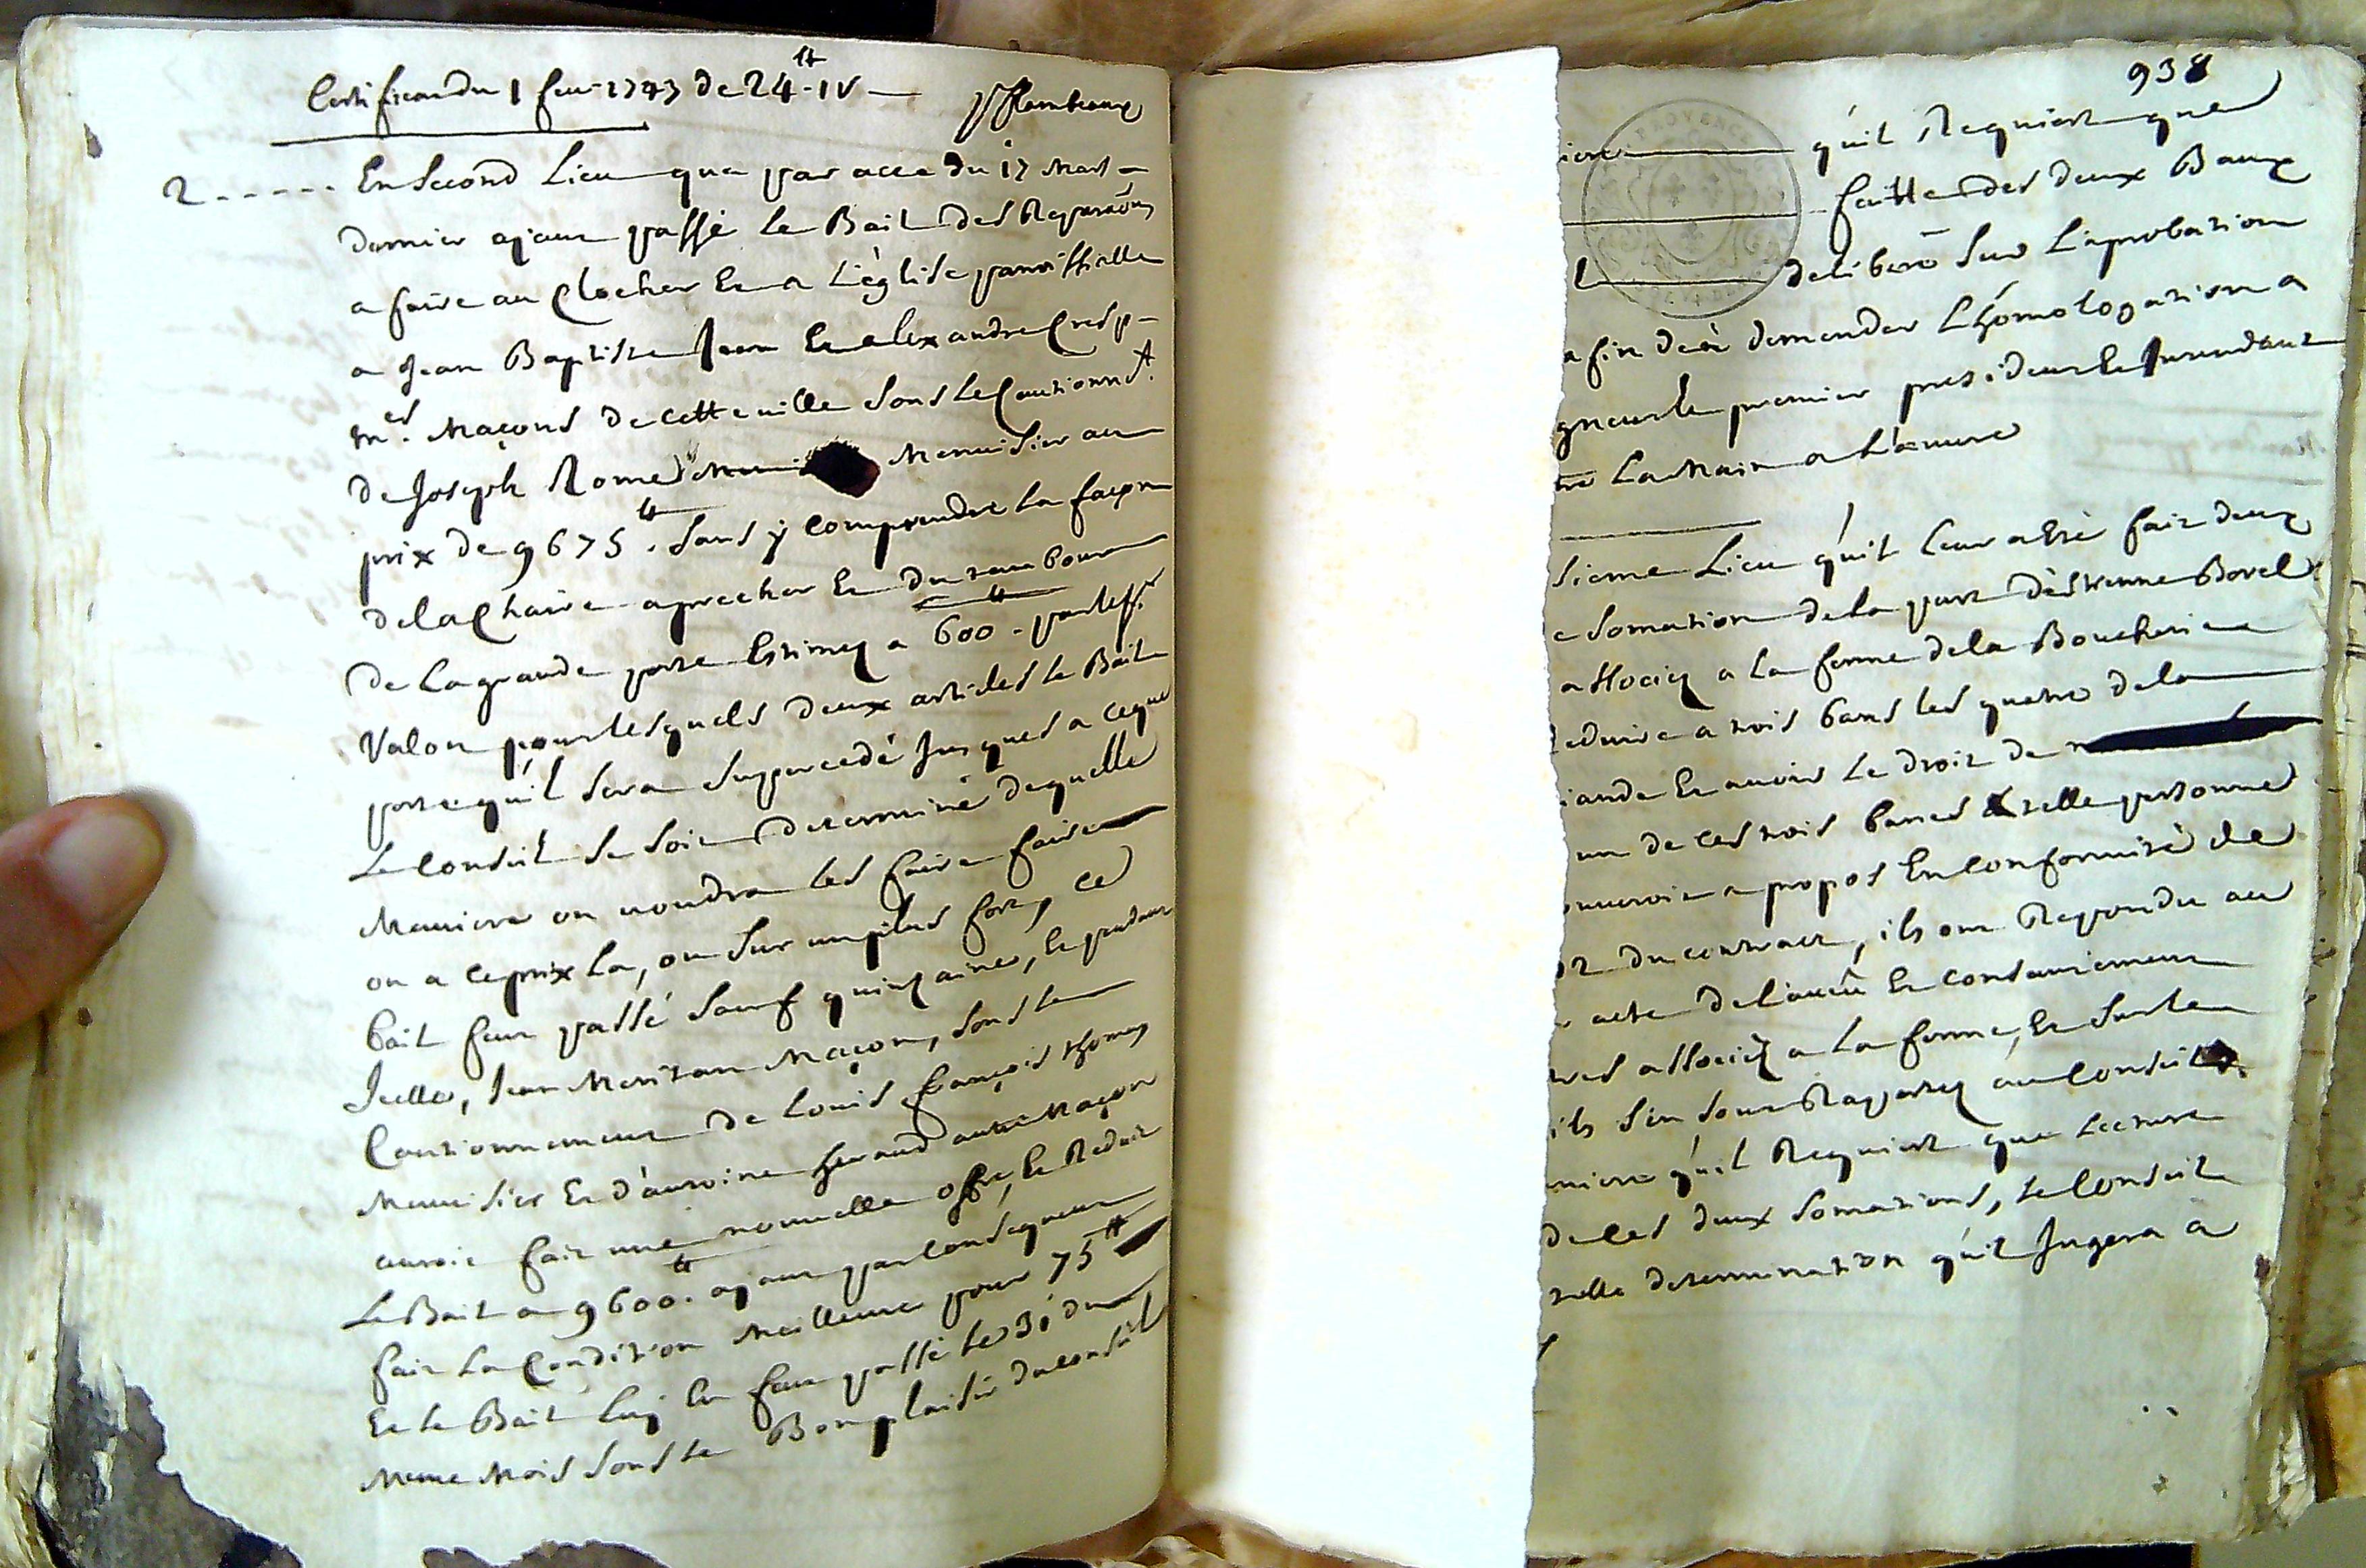 Certificat du 1 fevr 1743 de 24 ₶ - IV —
pr flambeaux
2 - - - - - En Second Lieu que par acte du 17 Mars
dernier ayant passé le Bail des Reparaōns
a faire au Clocher Et a L'église parroissialle
a Jean Baptiste Jean Et alexandre Cresp
mes. Maçons de cette ville sous le Cautionnt.
de Joseph Rome Menuisier au
prix de 9675 ₶. sans y comprendre la façon
de la Chaire a precher Et du tambour
de La grande porte Estimez a 600 ₶ - par le sr
Valon pour lesquels deux articles le Bail
porte qu'il sera surpercedé Jusques a ce que
Le Conseil se soit determiné de quelle
Maniere on voudra les faire faire
ou a ce prix La, ou sur un plus fort, ce
bail fut passé sauf quinzaine, Et pendant
Icelle, Jean Meritan Maçon, sous le
Cautionnement de Louis françois thomas
Menuisier Et d'antoine heraud autre Maçon
auroit fait une nouvelle offre, Et Reduit
Le Bail a 9600 ₶. ayant par consequent
fait La Condition Meilleure pour 75 ₶
Et le Bail Luy En fut passé le 31 du
Meme Mois sous le Bon plaisir du conseil
938
PROVENCE
qu'il Requiert que
faitte des deux Baux
deliberé sur L'aprobation
afin d'en demander L'homologation a
gneur le premier president Et Intendant
tre La Main a L'œuvre
sieme Lieu qu'il leur a Eté fait deux
e somation de la part d'Estienne Borel
associez a la ferme de la Boucherie
eduire a trois bans les quatre de la
iande Et avoir Le droit de
un de ces trois bancs a telle personne
ouveroit a propos En Conformité de
du contract, ils ont Repondu au
acte de l'aveu Et consantement
tres associez a la ferme, Et sur le
ils s'en sont Raportez au Conseil
niere qu'il Requiert que Lecture
de ces deux somations, le Conseil
telle determination qu'il Jugera a